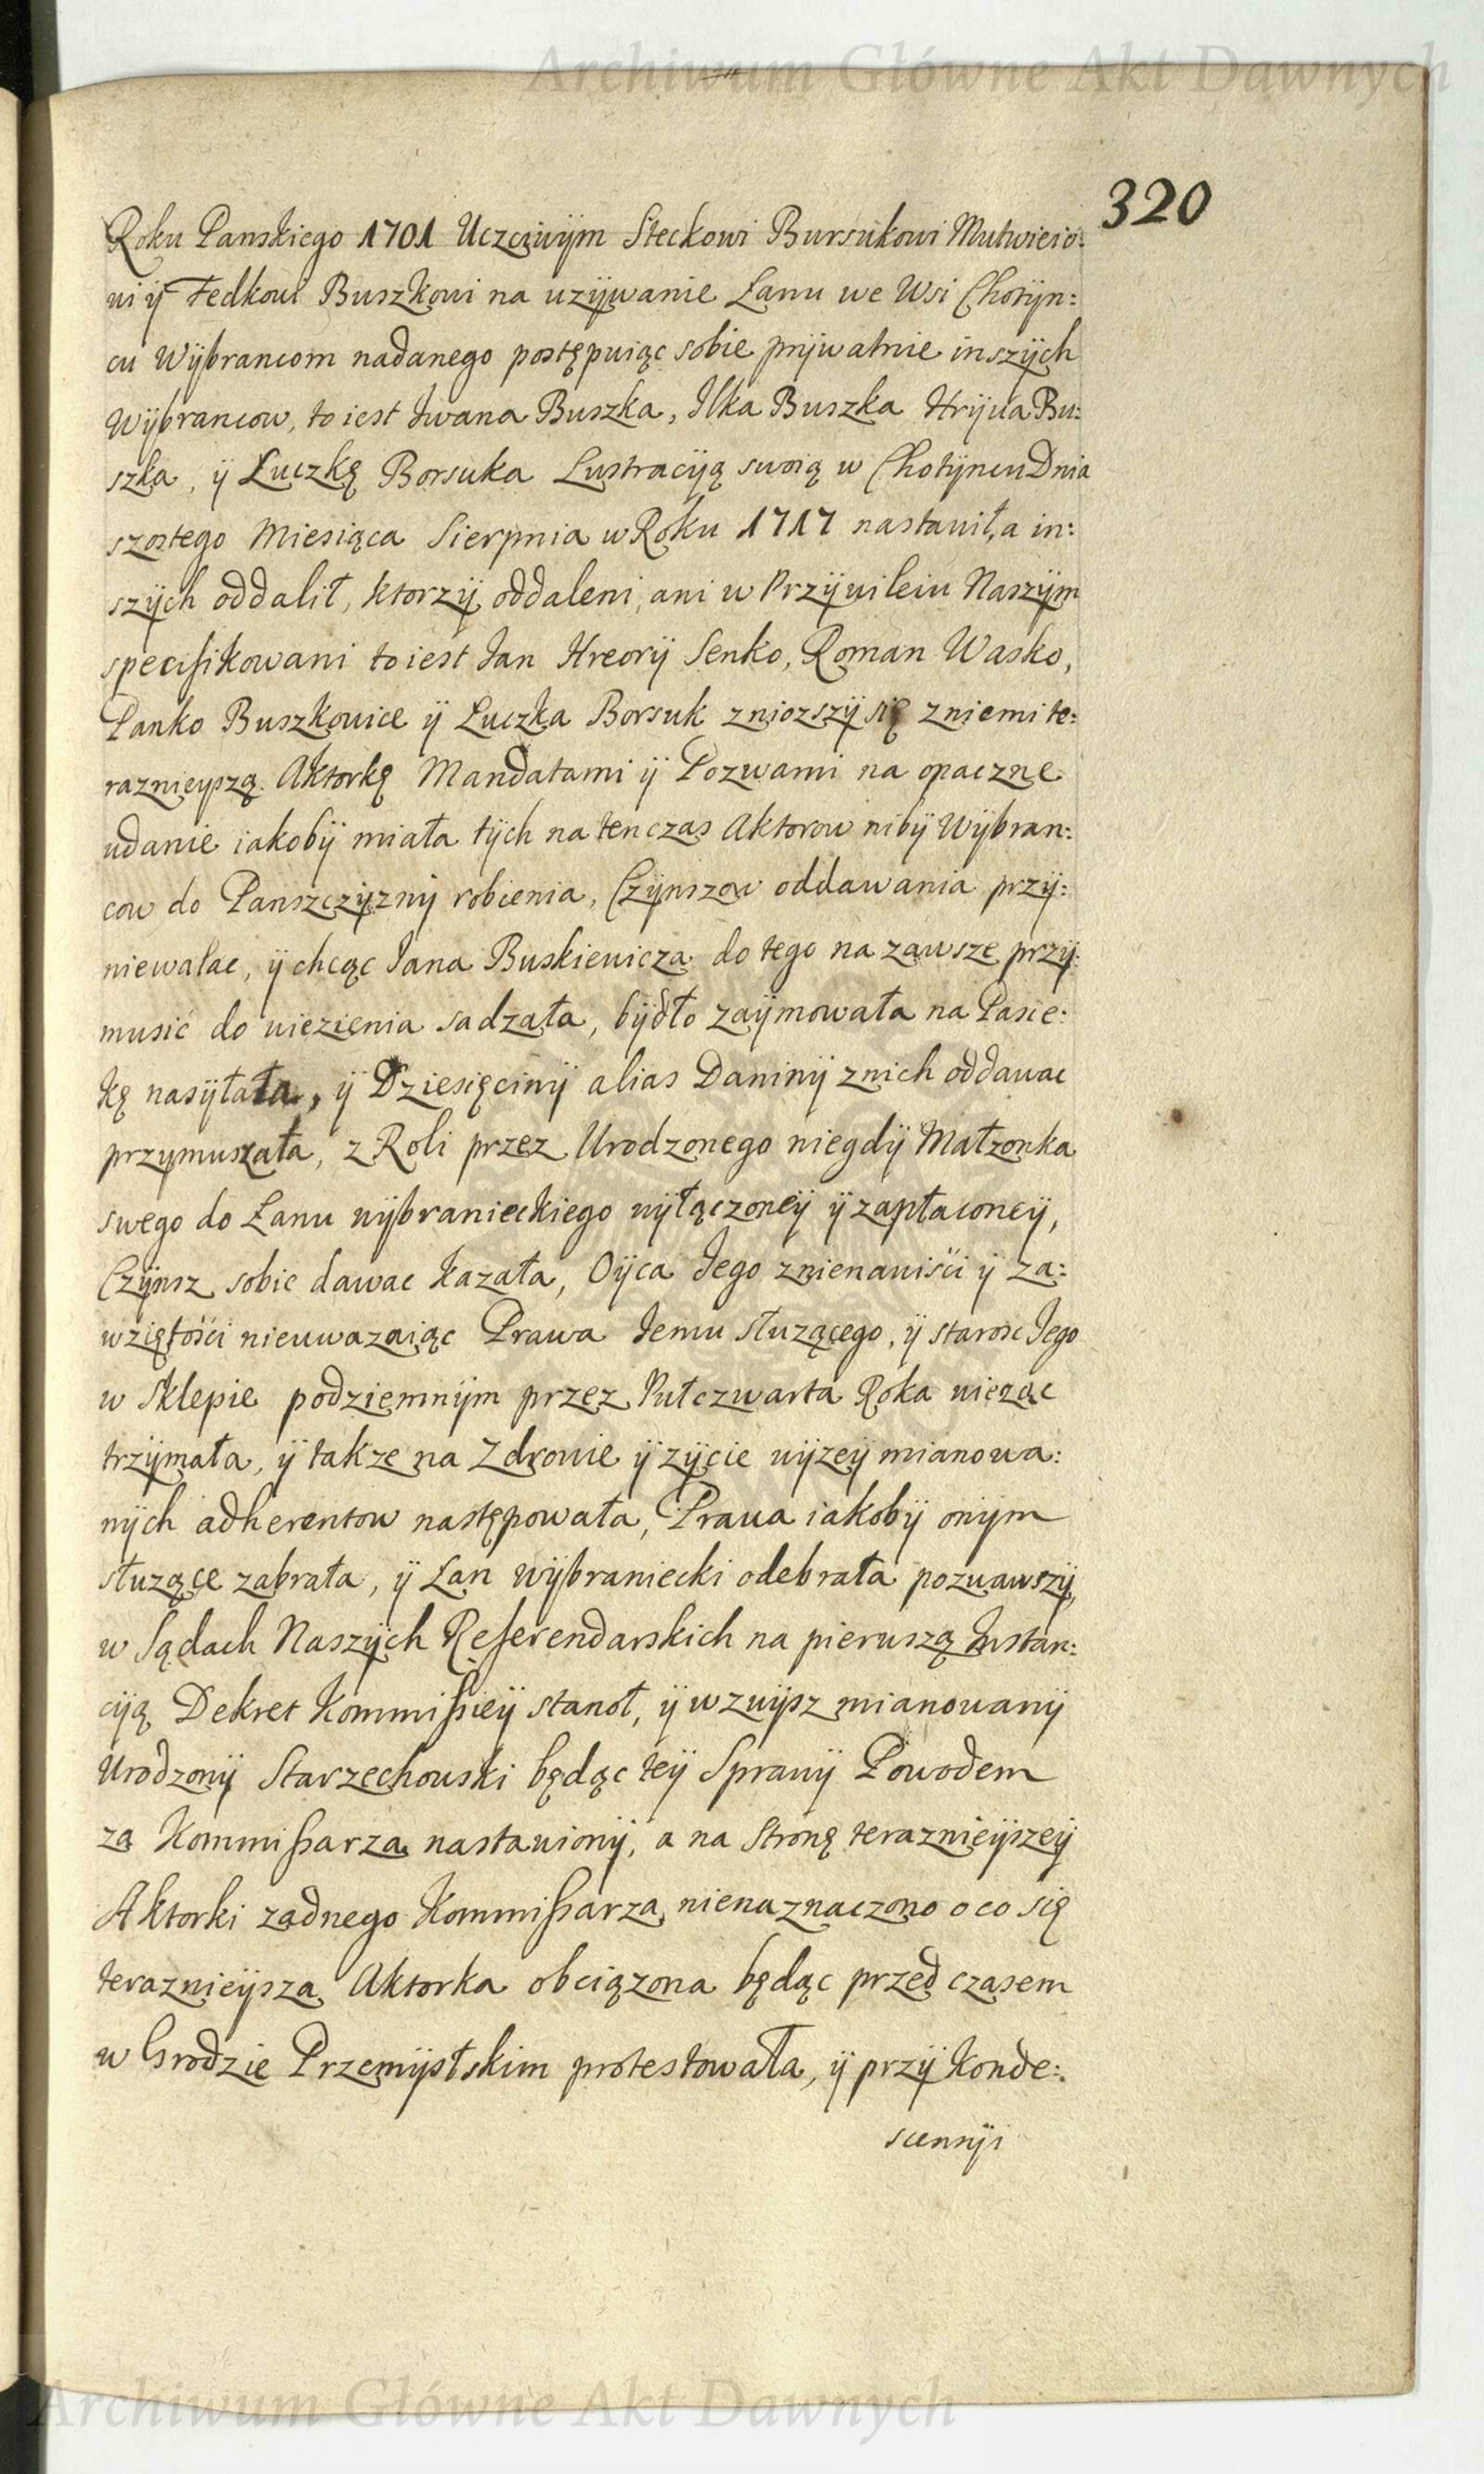 Archiwum Główne Akt Dawnych
320
Roku Panskiego 1701 Uczciwÿm Steckowi Bursukowi Mutwieio:
wi ÿ Fedkowi Buszkowi na uzÿwanie Łanu we Wsi Chotÿn:
cu Wÿbrancom nadanego postępuiąc sobie prÿwatnie inszÿch
Wÿbrancow, to iest Iwana Buszka, Ilka Buszka Hrÿcia Bu:
szka, ÿ Łuczkę Borsuka Lustracÿą swoią w Chotÿncu Dnia
szostego Miesiąca Sierpnia w Roku 1717 nastawił, a in:
szÿch oddalił, ktorzÿ oddaleni, ani w Przÿwileiu Naszÿm
specifikowani to iest Jan Hreorÿ Senko, Roman Wasko,
Panko Buszkowice ÿ Łuczka Borsuk zniozszÿ się zniemi te:
raznieyszą Aktorkę Mandatami ÿ Pozwami na opaczne
udanie iakobÿ miała tÿch na ten czas Aktorow nibÿ Wÿbran:
cow do Panszczÿznÿ robienia, Czÿnszow oddawania przÿ:
niewalac, ÿ chcąc Jana Buskiewicza do tego na zawsze przÿ:
musić do wiezienia sadzała, bÿdło zaÿmowała na Pasie:
kę nasÿłała, ÿ Dziesięcinÿ alias Daninÿ znich oddawac
przymuszała, z Roli przez Urodzonego niegdÿ Małzonka
swego do Łanu wÿbranieckiego wÿłączoneÿ ÿ zapłaconeÿ,
Czÿnsz sobie dawac kazała, Oÿca Jego znienawiści ÿ za:
wziętości nieuwazaiąc Prawa Jemu słuzącego, ÿ starosc Jego
w Sklepie podziemnÿm przez Pułczwarta Roka wieząc
trzÿmała, ÿ takze na Zdrowie ÿ zÿcie wÿzeÿ mianowa:
nÿch adherentow następowała, Prawa iakobÿ onÿm
słuzące zabrała, ÿ Łan wÿbraniecki odebrała pozwawszÿ,
w Sądach Naszÿch Referendarskich na pierwszą Instan:
cÿą Dekret Kommissieÿ stanoł, ÿ wzwÿsz mianowanÿ
Urodzonÿ Starzechowski będąc teÿ Sprawÿ Powodem
za Kommissarza nastawionÿ, a na Stronę teraznieÿszeÿ
Aktorki zadnego Kommissarza nienaznaczono o co się
teraznieÿsza Aktorka obciązona będąc przed czasem
w Grodzie Przemÿslskim protestowała, ÿ przÿ Konde:
scensÿi
Archiwum Główne Akt Dawnych